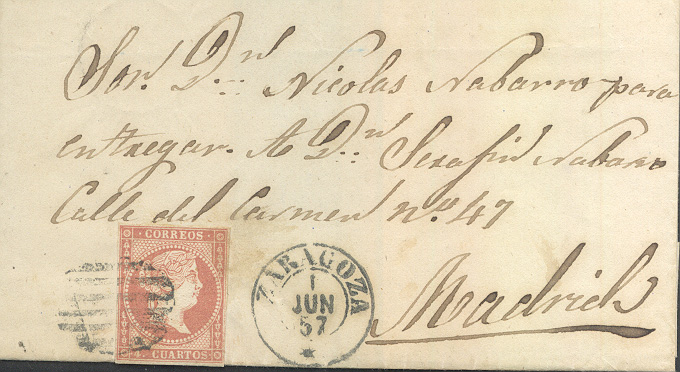 Sor. Dn. Nicolas Nabarro para
entregar. A Dn. Serafin Nabarro
Calle del Carmen no. 47
Madrid
CORREOS
4 CUARTOS
ZARAGOZA
1
JUN
57